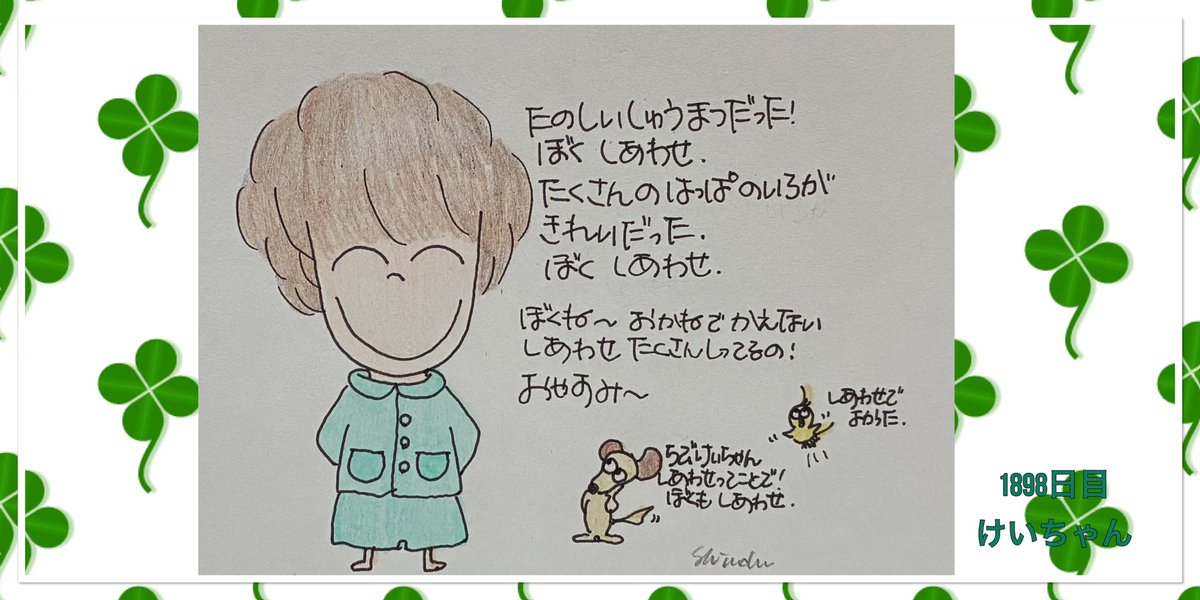 たのしいしゅうまつだった!
ぼく しあわせ.
たくさんの はっぱ のいろが
きれいだった.
ぼく しあわせ.
ぼくね〜 おかねで かえない
しあわせ たくさんしってるの!
おやすみ〜
しあわせで
よかった.
ちびけいちゃん
しあわせってことで!
ぼくも しあわせ.
1898日目
けいちゃん